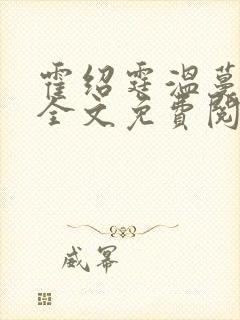 霍绍霆温蔓
全文免费阅
威幂